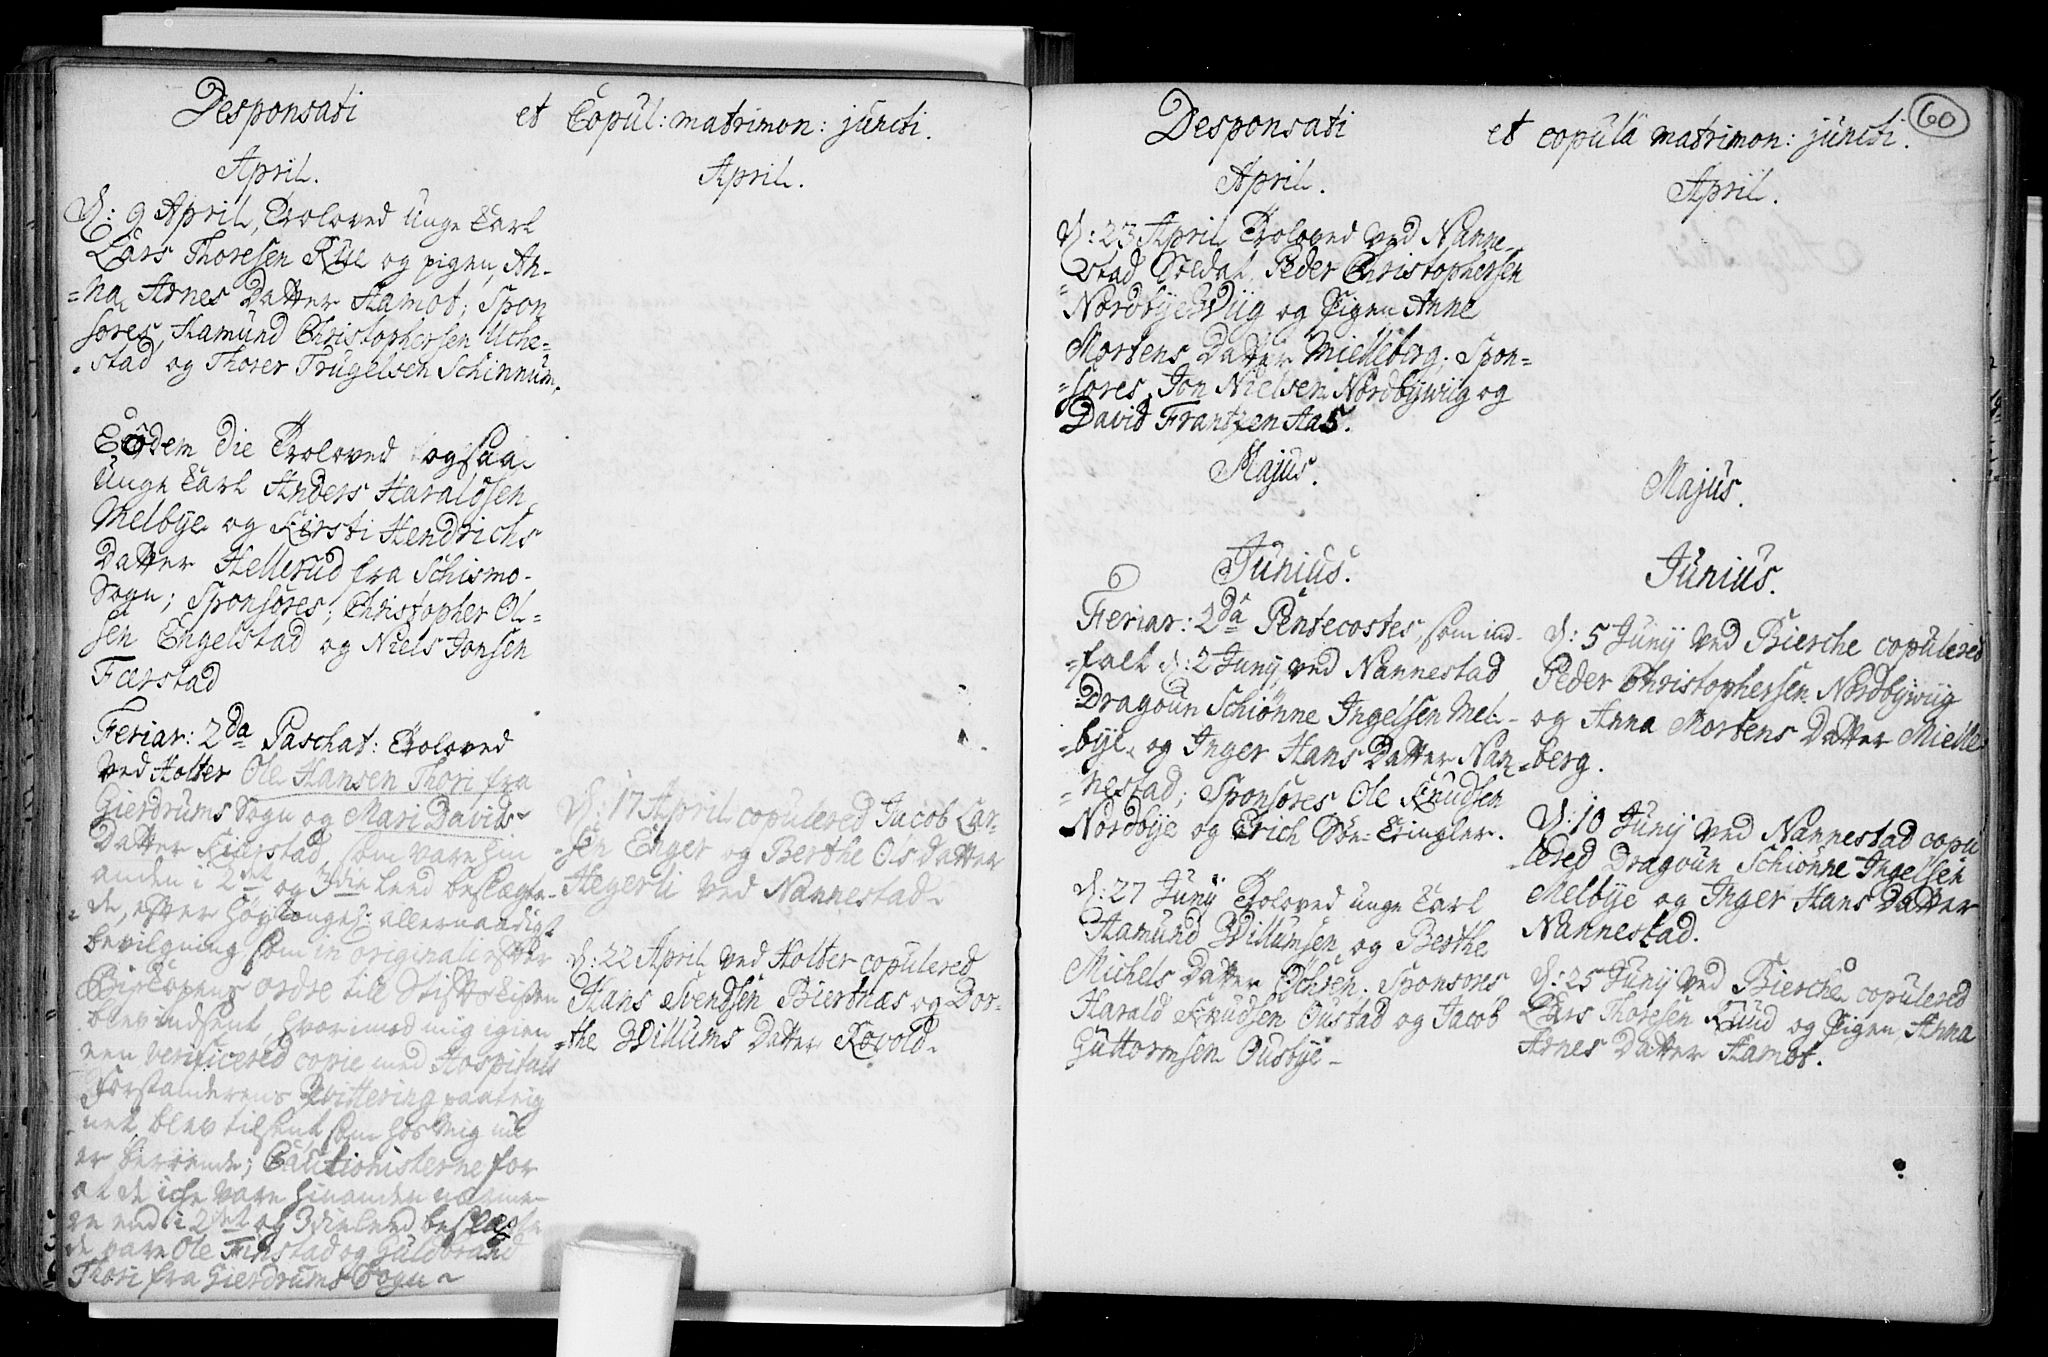 Desponsati et Copul: matrimon: juncti.
April.
D: 9 April, Troloved unge Karl
Lars Thoresen Kue og pigen, An-
=na Arnes Datter Hamot; Spon
sores, Hamund Christophersen Uche-
=stad og Thorer Trugelsen Schinnum.
Eodem die Troloved ogsaa
Unge Karl Anders Haraldsen
Melbye og Kirsti Hendrichs
Datter Hellerud fra Schismo-
Sogn; Sponsores; Christopher Ol-
sen Engelstad og Niels Jonsen
Færstad
Feriar: 2da Paschat: Troloved
ved Holter Ole Hansen Thori fra
Gierdrums Sogn og Mari Davids
Datter Finstad, som vare hin
anden i 2det og 3die Leed beslægte-
=de, efter Høylovgeh: allernaadigst
bevilgning som in originali efter
Biskopens ordre till Stiftskisten
blev indsent, hvorimod mig igien
een verificered copie med Hospitals
Forstanderens Qvittering paateig
net blev tilsent som hos mig nu
er beroende; Cautionisterne for
at de iche vare hinanden nærme-
re end i 2det og 3die Leed beslægte
de vare Ole Finstad og Guldbrand
Thori fra Gierdrums Sogn ~
April.
D: 17 April copulered Jacob Lar-
=sen Enger og Berthe Ols datter
Hegerli ved Nannestad.
D: 22 April ved Holter copulered
Hans Svendsen Biertnæs og Dor-
=the Willums Datter Kovold.
60
Desponsati et copula matrimon: juncti.
April.
D: 23 April Troloved ved Nanne-
=stad Peder Christophersen
Nordbye Wiig og Pigen Anne
Mortens Datter Mielleberg; Spon-
=sores, Jon Nielsen Nordbywiig og
David Frantzen Aas.
Majus.
Junius.
Feriar: 2da Pentecostes, som ind-
=falt d: 2 Junij, ved Nannestad
Dragoun Schiønne Ingelsen Mel-
=bye og Inger Hans Datter Nan-
=nestad; Sponsores Ole Knudsen
Nordbye og Erich Søn-Kringler.
D: 27 Junij Troloved unge Karl
Hamund Willumsen og Berthe
Michels Datter Ochren. Sponsores
Harald Knudsen Oustad og Jacob
Guttormsen Ousbye.
April.
Majus.
Junius.
D: 5 Junij ved Bierche copulered
Peder Christophersen Nordbywiig
og Anna Mortens Datter Mielle
=berg.
D: 10 Junij ved Nannestad copu
=lered Dragoun Schiønne Ingelsen
Melbye og Inger Hans Datter
Nannestad.
D: 25 Junij ved Bierche copulered
Lars Thoresen Kuud og Pigen, Anna
Arnes Datter Hamot.